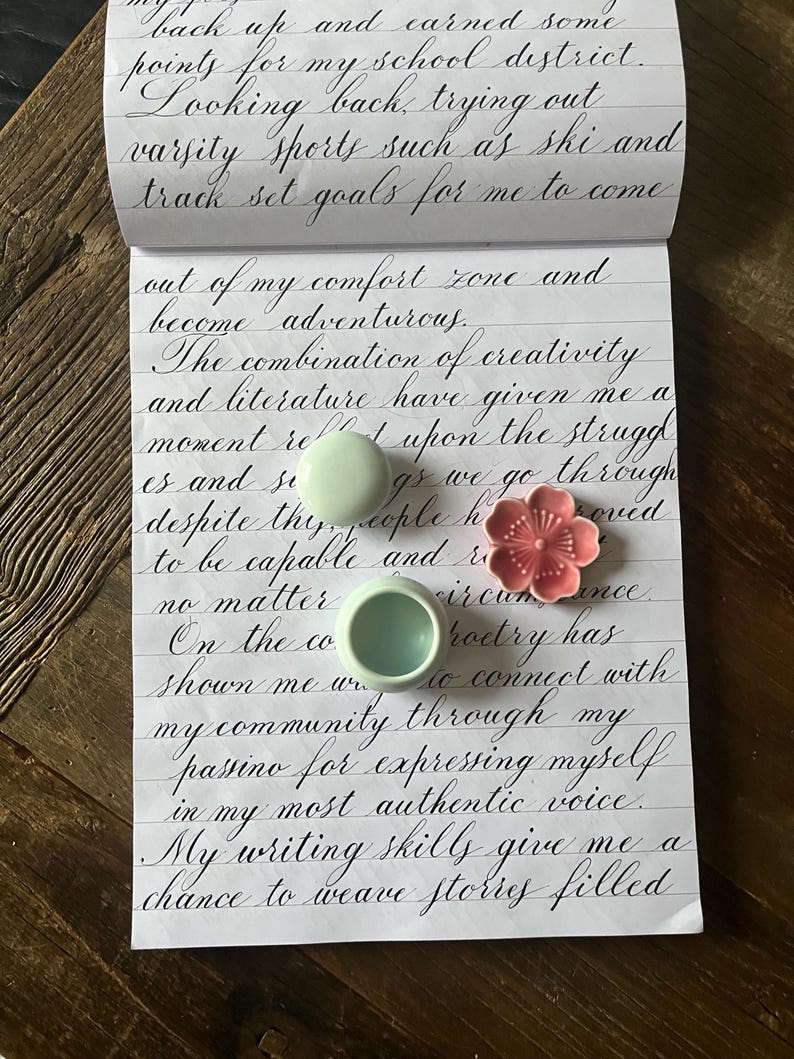 back up and earned some
points for my school district.
Looking back, trying out
varsity sports such as ski and
track set goals for me to come
out of my comfort zone and
become adventurous.
The combination of creativity
and literature have given me a
moment upon the struggl
es and we go through
despite this, people
to be capable and
no matter circumstance.
On the poetry has
shown me to connect with
my community through my
passino for expressing myself
in my most authentic voice.
My writing skills give me a
chance to weave storres filled